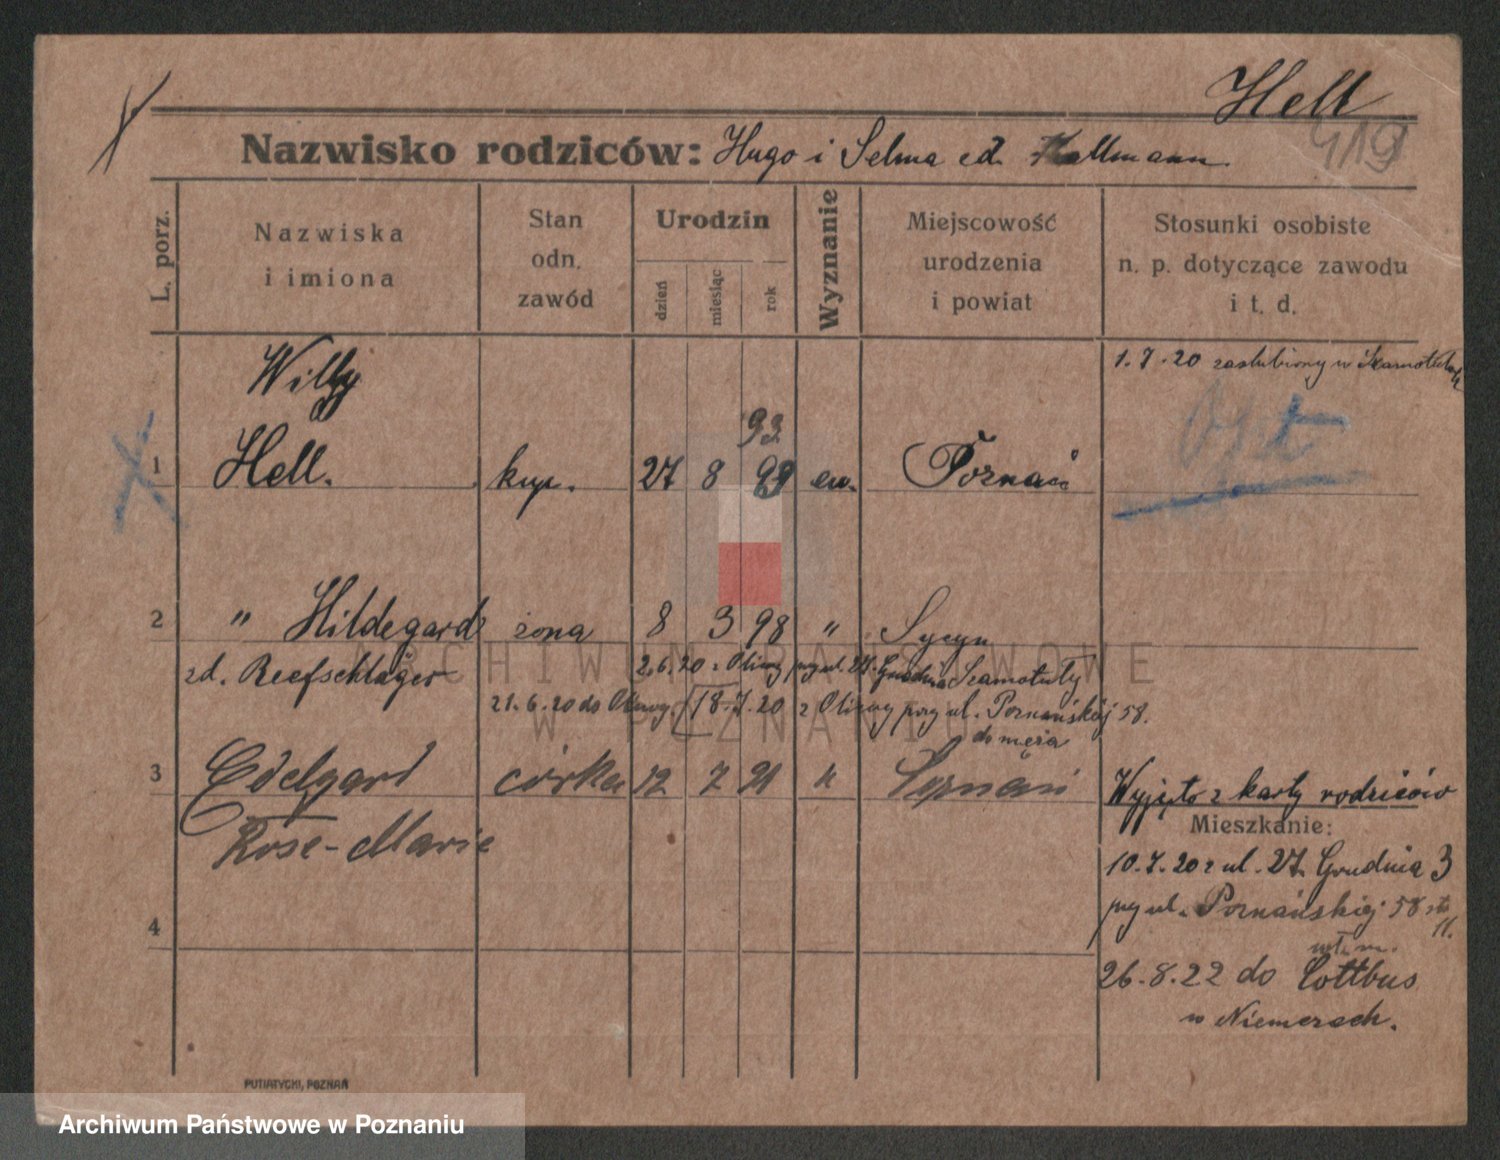 Hell
419
Nazwisko rodziców: Hugo i Selma zd. Kallmann
L. porz.
Nazwiska i imiona
Stan odn. zawód
Urodzin
dzień
miesiąc
rok
Wyznanie
Miejscowość urodzenia i powiat
Stosunki osobiste n. p. dotyczące zawodu i t. d.
Willy
1.7.20 zaślubiony w Szamotułach
93
1 Hell. kup. 27 8 ew. Poznań
2 " Hildegard żona 8 3 98 " Sycyn
zd. Reefschläger
2.6.20 z Oliwy przy ul. 27. Grudnia Szamotuły
21.6.20 do Oliwy. 18.7.20 z Oliwy przy ul. Poznańskiej 58.
do męża
3 Edelgard córka 12 7 21 " Poznań
Rose-Marie
Wyjęto z karty rodziców
Mieszkanie:
10.7.20 z ul. 27. Grudnia 3
przy ul. Poznańskiej 58
11.
4
26.8.22 do Cottbus
w Niemczech.
PUTIATYCKI, POZNAŃ
ARCHIWUM PAŃSTWOWE
W POZNANIU
Archiwum Państwowe w Poznaniu